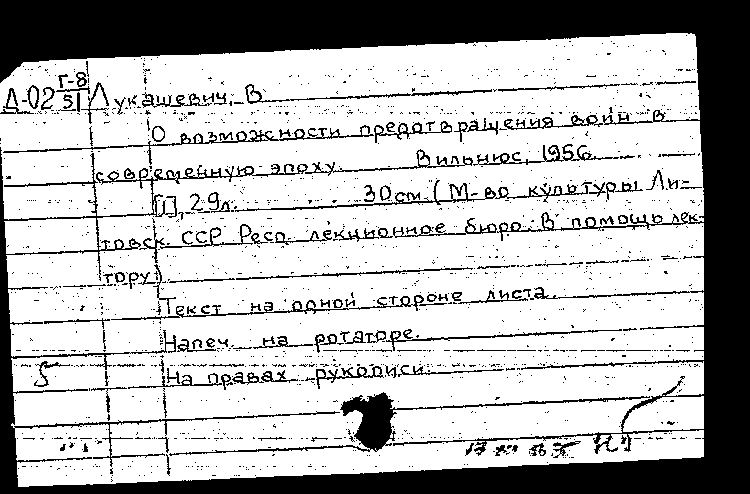 Г-8
Д-02 51 Лукашевич, В
О возможности предотвращения войн в
современную эпоху. Вильнюс, 1956.
[1], 29л. 30см. (М-во культуры Ли-
товск. ССР Респ. лекционное бюро. В помощь лек-
тору).
Текст на одной стороне листа.
Напеч. на ротаторе.
На правах рукописи.